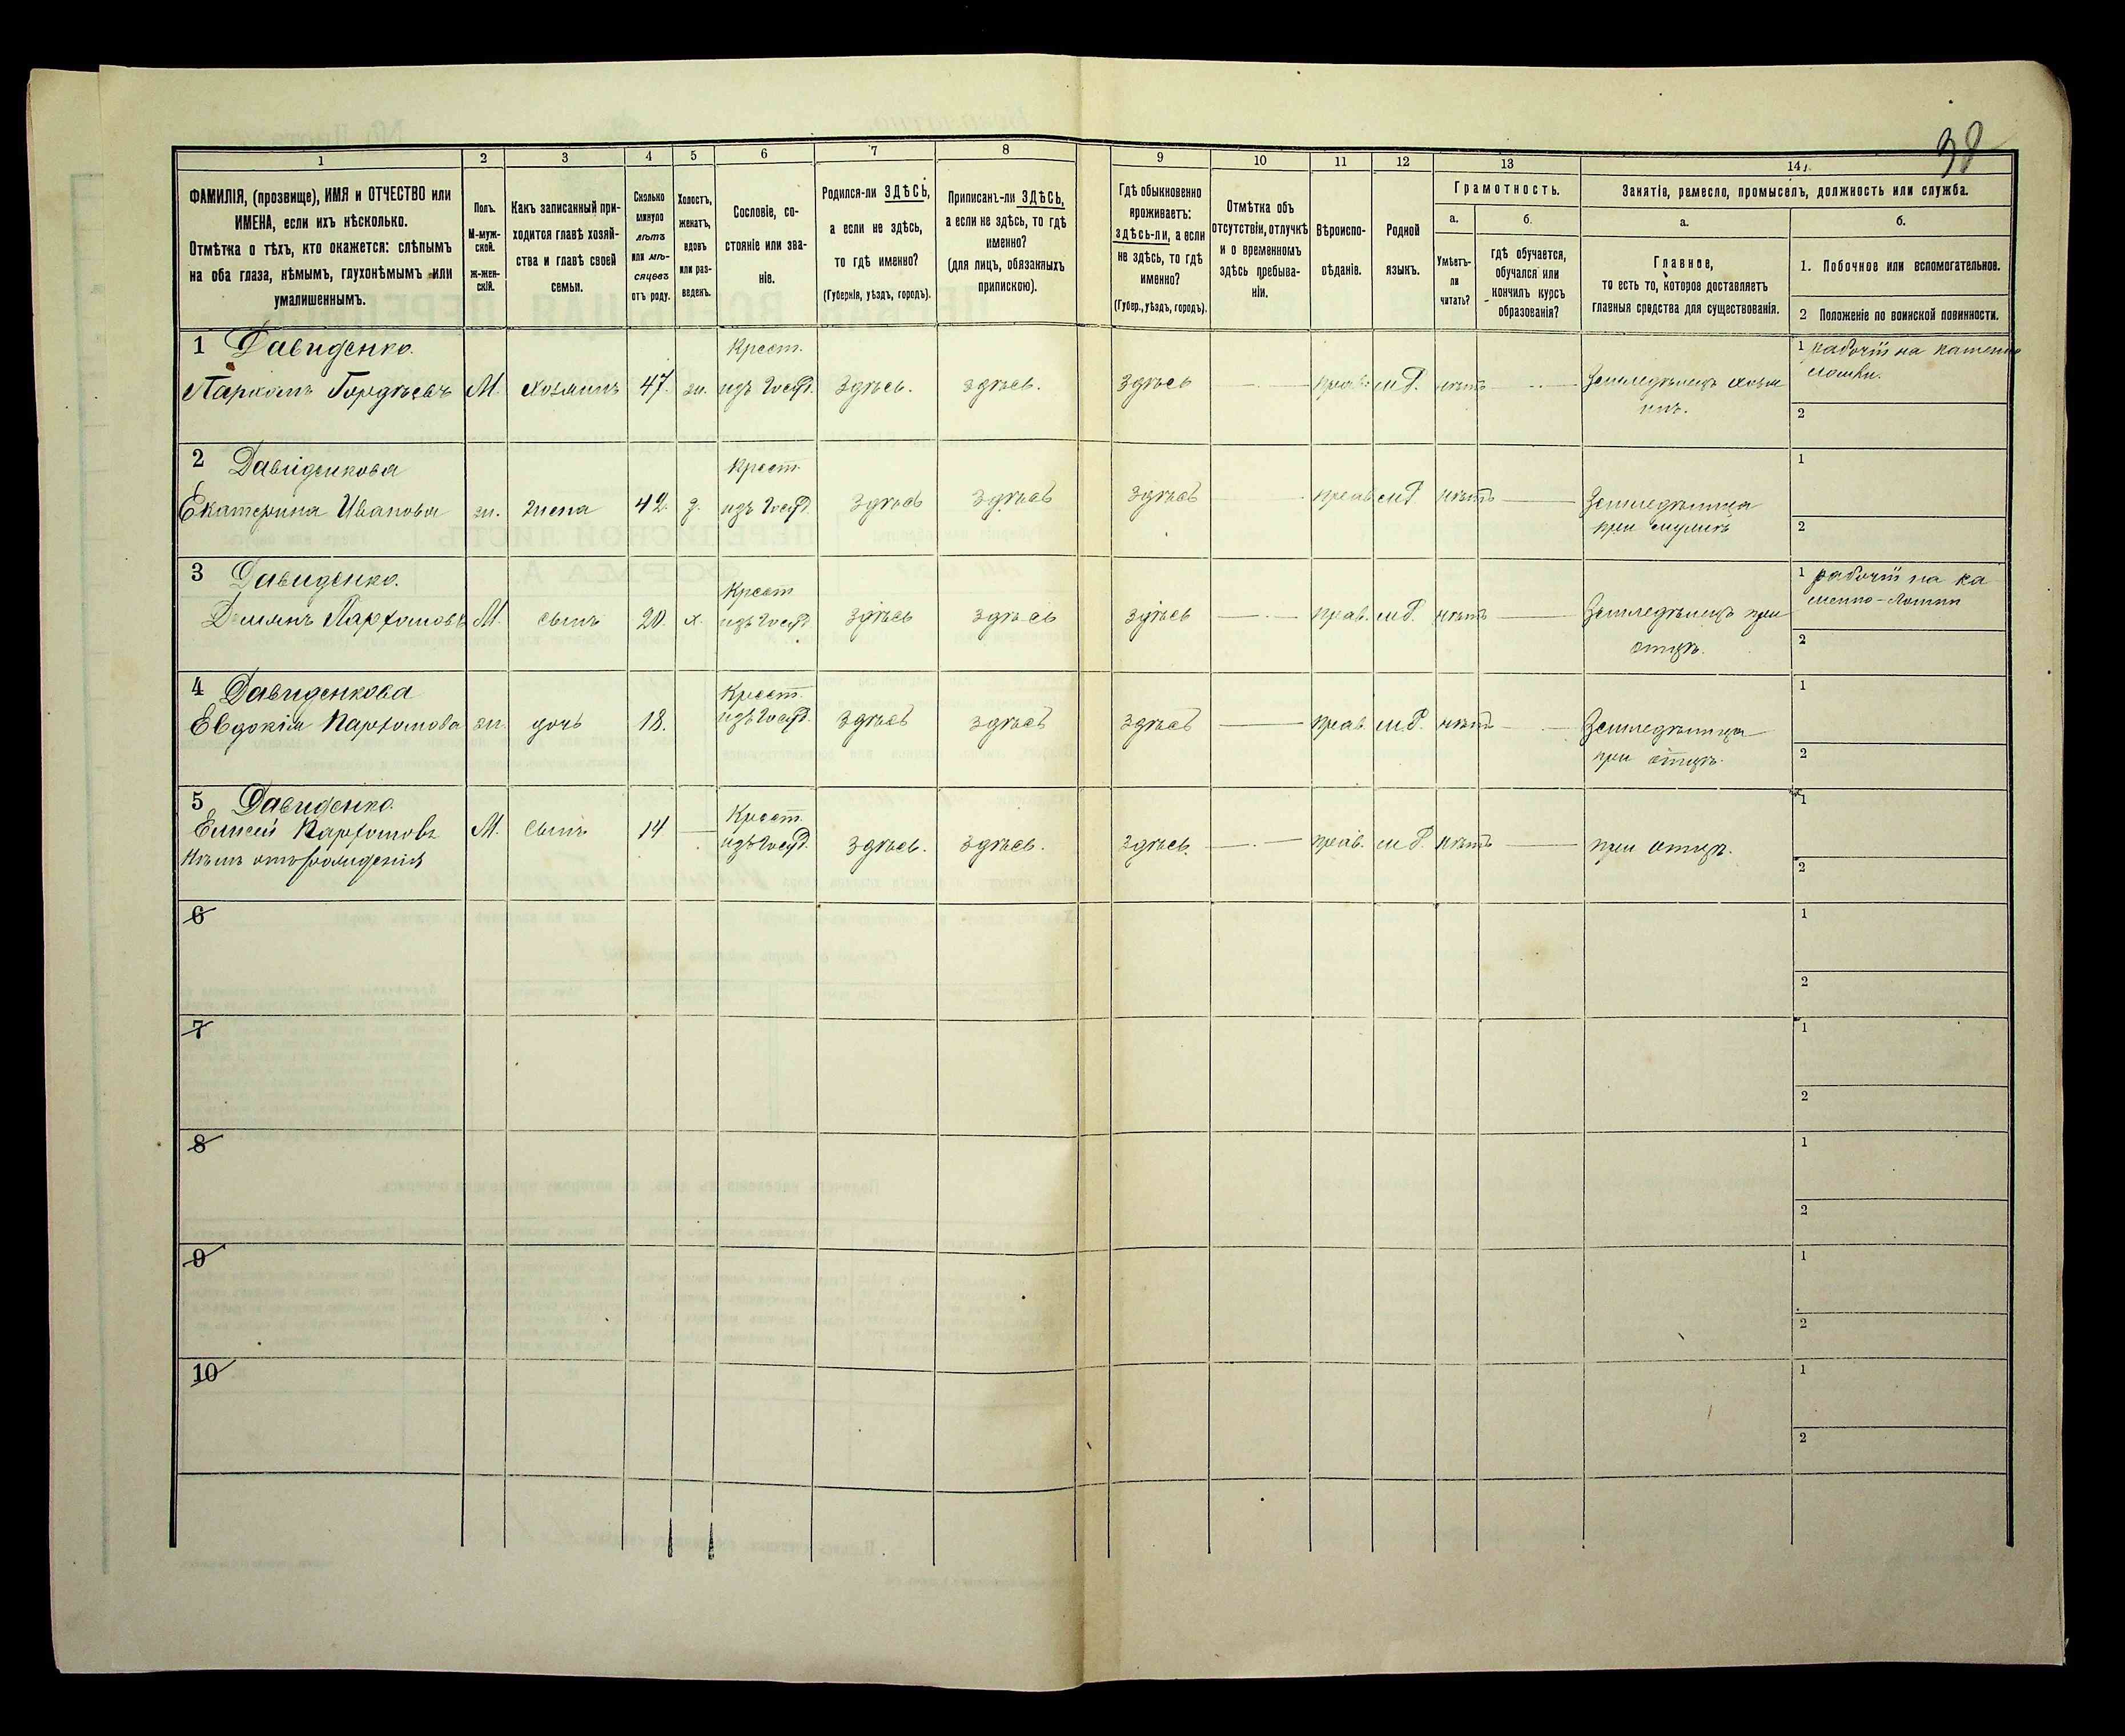 38
1
2
3
4
5
6
7
8
9
10
11
12
13
14
ФАМИЛІЯ, (прозвище), ИМЯ и ОТЧЕСТВО или
ИМЕНА, если ихъ нѣсколько.
Отмѣтка о тѣхъ, кто окажется: слѣпымъ
на оба глаза, нѣмымъ, глухонѣмымъ или
умалишеннымъ.
Полъ.
М-муж-
ской.
ж-жен-
скій.
Какъ записанный при-
ходится главѣ хозяй-
ства и главѣ своей
семьи.
Сколько
минуло
лѣтъ
или мѣ-
сяцевъ
отъ роду.
Холостъ,
женатъ,
вдовъ
или раз-
веденъ.
Сословіе, со-
стояніе или зва-
ніе.
Родился-ли ЗДѢСЬ,
а если не здѣсь,
то гдѣ именно?
(Губернія, уѣздъ, городъ).
Приписанъ-ли ЗДѢСЬ,
а если не здѣсь, то гдѣ
именно?
(для лицъ, обязанныхъ
припискою).
Гдѣ обыкновенно
проживаетъ:
здѣсь-ли, а если
не здѣсь, то гдѣ
именно?
(Губер., уѣздъ, городъ).
Отмѣтка объ
отсутствіи, отлучкѣ
и о временномъ
здѣсь пребыва-
ніи.
Вѣроиспо-
вѣданіе.
Родной
языкъ.
Грамотность.
а.
Умѣетъ-
ли
читать?
б.
гдѣ обучается,
обучался или
кончилъ курсъ
образованія?
Занятіе, ремесло, промыселъ, должность или служба.
а.
Главное,
то есть то, которое доставляетъ
главныя средства для существованія.
б.
1. Побочное или вспомогательное.
2 Положеніе по воинской повинности.
1 Давиденко.
Пархомъ Гордѣевъ М. хозяинъ 47. ж. Крест. изъ Госуд. Здѣсь. здѣсь. здѣсь — прав. м.Р. нѣтъ — Земледѣлецъ хозяинъ.
1 рабочій на каменно
ломки.
2
2 Давиденкова
Екатерина Иванова ж. жена 42. з. Крест. изъ Госуд. Здѣсь Здѣсь Здѣсь — прав. м.Р. нѣтъ — Земледѣлица
при мужѣ
1
2
3 Давиденко.
Демянъ Пархомовъ М. сынъ 20 х. Крест изъ Госуд Здѣсь Здѣсь здѣсь — прав. м.Р. нѣтъ — Земледѣлецъ при
отцѣ.
1 рабочій на ка
менно-ломки
2
4 Давиденкова
Евдокія Пархомова ж. дочь 18. Крест. изъ Госуд. Здѣсь здѣсь здѣсь — прав. м.Р. нѣтъ — Земледѣлица
при отцѣ.
1
2
5 Давиденко
Елисей Пархомовъ М. Сынъ 14 — Крест. изъ Госуд. Здѣсь. здѣсь. здѣсь. — прав. м.Р. нѣтъ — при отцѣ.
Нѣмъ отъ рожденія
1
2
6
1
2
7
1
2
8
1
2
9
1
2
10
1
2